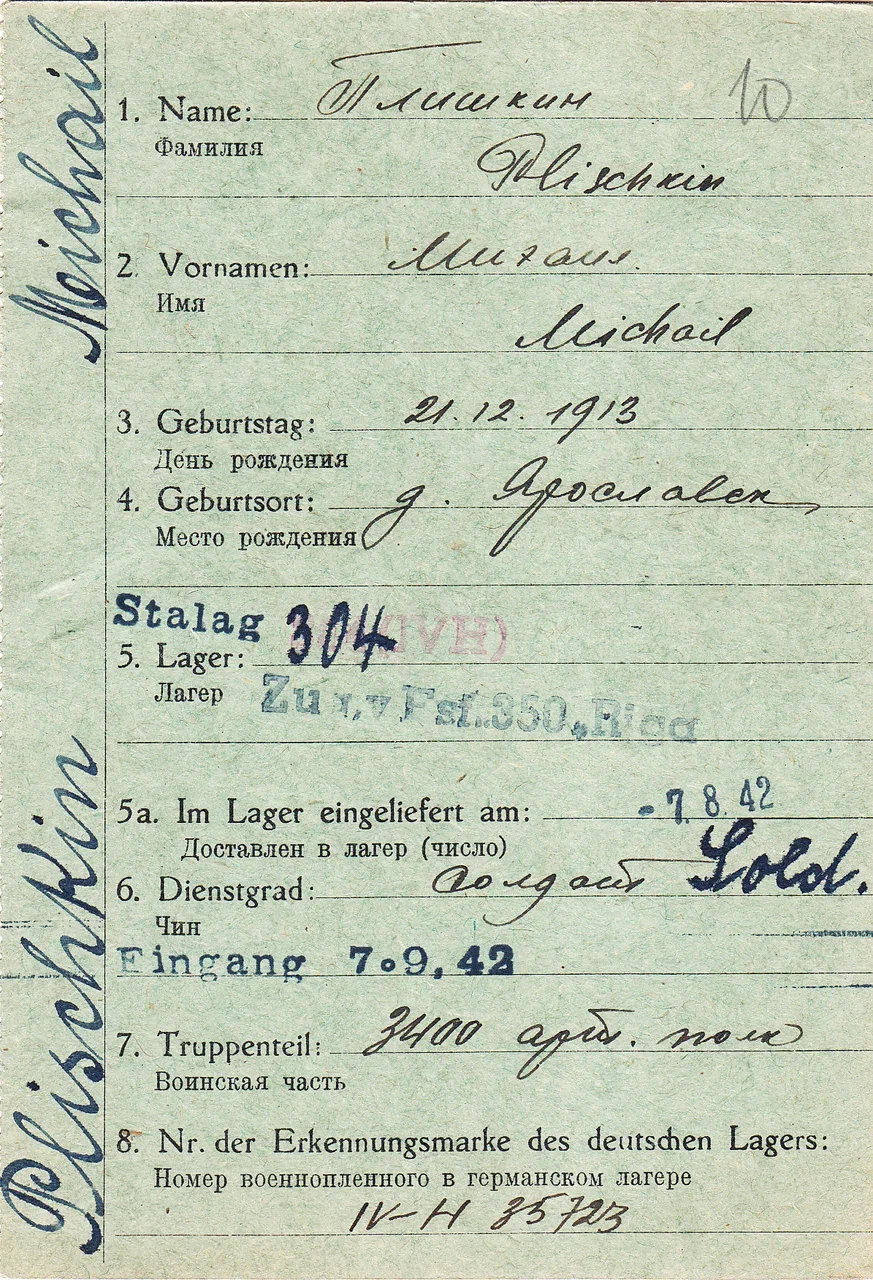 Plischkin Michail
10
1. Name: Плишкин
Фамилия
Plischkin
2. Vornamen: Михаил
Имя
Michail
3. Geburtstag: 21.12.1913
День рождения
4. Geburtsort: д. Ярославск
Место рождения
Stalag 304 (IVH)
5. Lager:
Лагерь
350, Riga
5a. Im Lager eingeliefert am: -7.8.42
Доставлен в лагер (число)
6. Dienstgrad: солдат Sold.
Чин
Eingang 7.9.42
7. Truppenteil: 3400 арт. полк
Воинская часть
8. Nr. der Erkennungsmarke des deutschen Lagers:
Номер военнопленного в германском лагере
IV-H 35723